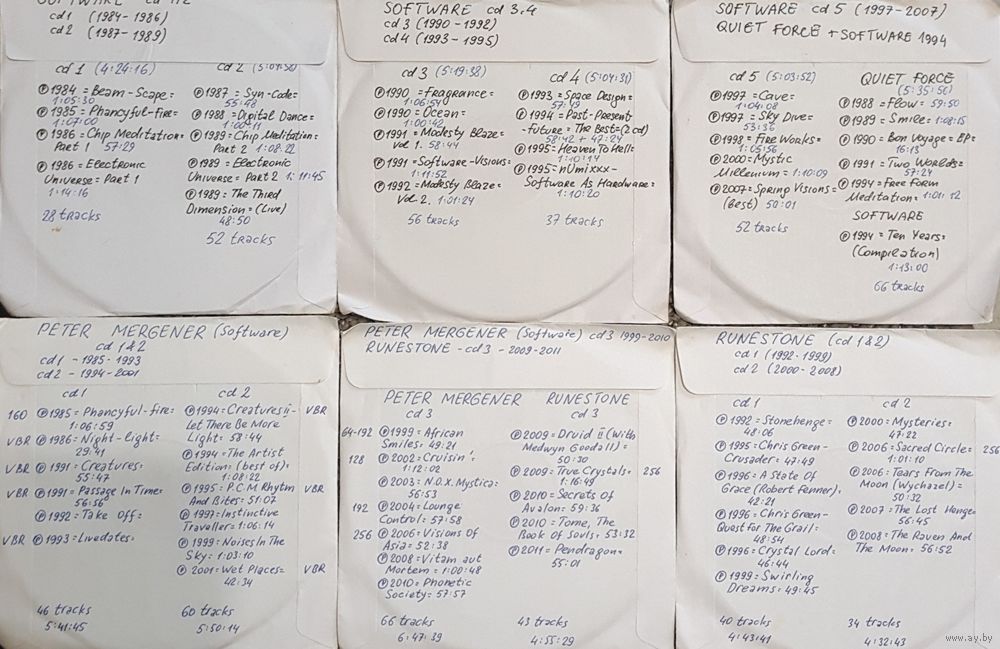 SOFTWARE cd 1,2
cd 1 (1984-1986)
cd 2 (1987-1989)
cd 1 (4:24:16)
℗1984 =Beam-Scape=
1:05:30
℗1985=Phancyful-fire=
1:07:00
℗1986 =Chip Meditation=
Part 1 57:29
℗1986 =Electronic
Universe=Part 1
1:14:16
28 tracks
cd 2
℗1987= Syn-Code=
55:48
℗1988=Digital Dance=
℗1989=Chip Meditation=
Part 2 1:08:22
℗1989 =Electronic
Universe=Part 2 1:11:45
℗1989=The Third
Dimension=(Live)
48:50
52 tracks
SOFTWARE cd 3.4
cd 3 (1990-1992)
cd 4 (1993-1995)
cd 3 (5:19:38)
℗1990 =Fragrance=
1:06:54
℗1990 =Ocean=
1:00:42
℗1991 =Modesty Blaze=
Vol 1. 58:44
℗1991=Software-Visions=
1:11:52
℗1992 =Modesty Blaze=
Vol 2. 1:01:24
56 tracks
cd 4 (5:04:31)
℗1993=Space Design=
57:49
℗1994 =Past-Present
-future =The Best=(2cd)
58:42 + 47:24
℗1995=Heaven To Hell=
1:10:14
℗1995=nUmixxx-
Software As Hardware=
1:10:20
37 tracks
SOFTWARE cd 5 (1997-2007)
QUIET FORCE + SOFTWARE 1994
cd 5 (5:03:52)
℗1997 =Cave=
1:04:08
℗1997 =Sky Dive=
53:36
℗1998 =Fire Works=
1:05:56
℗2000=Mystic
Millenium= 1:10:09
℗2007=Spring Visions=
(Best) 50:01
52 tracks
QUIET FORCE
(5:35:50)
℗1988=Flow= 59:50
℗1989=Smile= 1:08:15
℗1990=Bon Voyage=EP=
16:13
℗1991=Two Worlds=
57:24
℗1994=Free Form
Meditation= 1:01:12
SOFTWARE
℗1994=Ten Years=
(Compilation)
1:13:00
66 tracks
PETER MERGENER (Software)
cd 1&2
cd 1 - 1985-1993
cd 2 - 1994-2001
cd 1
160 ℗1985=Phancyful-fire=
1:06:59
VBR ℗1986=Night-light=
29:41
VBR ℗1991=Creatures=
55:47
VBR ℗1991=Passage In Time=
56:56
℗1992=Take Off=
VBR ℗1993=Livedates=
46 tracks
5:41:45
cd 2
℗1994=Creatures ii- VBR
Let There Be More
Light= 58:44
℗1994=The Artist
Edition= (best of)=
1:08:22
℗1995=P.C.M Rhytm VBR
And Bites= 51:07
℗1997=Instinctive
Traveller= 1:06:14
℗1999=Noises In The
Sky= 1:03:10
℗2001=Wet Places= VBR
42:34
60 tracks
5:50:14
PETER MERGENER (Software) cd 3 1999-2010
RUNESTONE - cd 3 - 2009-2011
PETER MERGENER
cd 3
64-192 ℗1999=African
Smiles= 49:21
128 ℗2002=Cruisin'=
1:12:02
℗2003=N.O.X. Mystica=
56:53
192 ℗2004=Lounge
Control= 57:58
256 ℗2006=Visions Of
Asia= 52:38
℗2008=Vitam aut
Mortem= 1:00:48
℗2010=Phonetic
Society= 57:57
66 tracks
6:47:39
RUNESTONE
cd 3
℗2009=Druid ii (With
Medwyn Goodall)=
50:30
℗2009=True Crystals= 256
1:16:49
℗2010=Secrets Of
Avalon= 59:36
℗2010=Tome, The
Book of Souls= 53:32
℗2011=Pendragon=
55:01
43 tracks
4:55:29
RUNESTONE (cd 1&2)
cd 1 (1992-1999)
cd 2 (2000-2008)
cd 1
℗1992=Stonehenge=
48:06
℗1995=Chris Green-
Crusader= 47:49
℗1996=A State Of
Grace (Robert Fenner)=
42:21
℗1996=Chris Green-
Quest For The Grail=
48:54
℗1996=Crystal Lord=
46:44
℗1999=Swirling
Dreams= 49:45
40 tracks
4:43:41
cd 2
℗2000=Mysteries=
47:22
℗2006=Sacred Circle= 256
1:01:10
℗2006=Tears From The
Moon (Wychazel)=
50:32
℗2007=The Lost Henge=
56:45
℗2008=The Raven And
The Moon= 56:52
34 tracks
4:32:43
www.ay.by